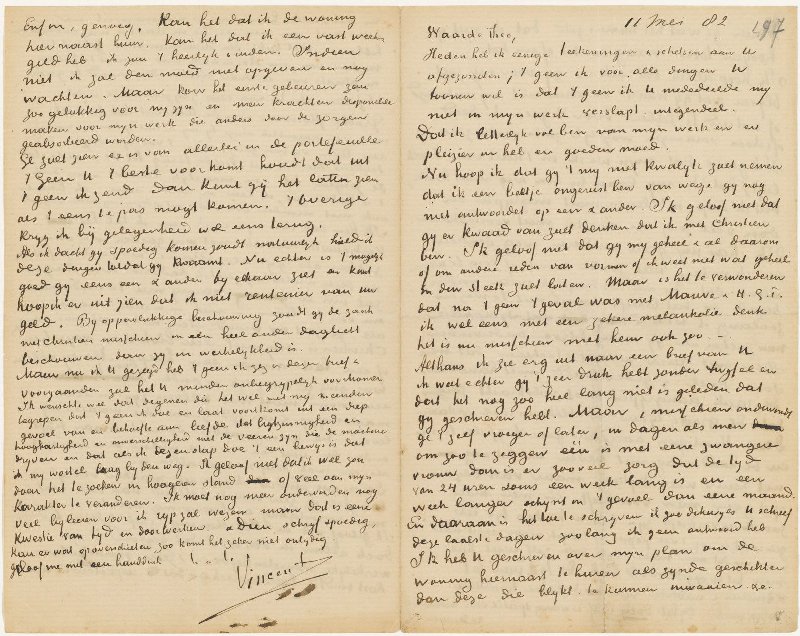 11 Mei 82
497
Waarde Theo,
Heden heb ik eenige teekeningen & schetsen aan U
afgezonden; 't geen ik voor alle dingen U
toonen wil is dat 't geen ik U mededeelde mij
niet in mijn werk verslapt. integendeel.
Dat ik letterlijk vol ben van mijn werk en er
pleizier in heb en goeden moed.
Nu hoop ik dat gij 't mij niet kwalijk zult nemen
dat ik een beetje ongerust ben van wege gij nog
niet antwoordet op een & ander. Ik geloof niet dat
gij er kwaad van zult denken dat ik met Christien
ben. Ik geloof niet dat gij mij geheel & al daarom
of om andere reden van vormen of ik weet niet wat geheel
in den steek zult laten. Maar is het te verwonderen
dat na 't geen 't geval was met Mauve & H.G.T.
ik wel eens met een zekere melankolie denk
het is nu misschien met hem ook zoo. –
Althans ik zie erg uit naar een brief van U
ik weet echter gij 't zeer druk hebt zonder twijfel en
dat het nog zoo heel lang niet is geleden dat
gij geschreven hebt. Maar, misschien ondervindt
ge 't zelf vroeger of later, in dagen als men
om zoo te zeggen één is met eene zwangere
vrouw dan is er zooveel zorg dat de tijd
van 24 uren soms een week lang is en een
week langer schijnt in 't gevoel dan eene maand.
En daaraan is het toe te schrijven ik zoo dikwijls U schreef
deze laatste dagen zoolang ik geen antwoord heb
Ik heb U geschreven over mijn plan om de
woning hiernaast te huren als zijnde geschikter
dan deze die blijkt te kunnen &c.
Enfin, genoeg, Kan het dat ik de woning
hier naast huur. Kan het dat ik een vast week-
geld heb ik zou 't heerlijk vinden. Indien
niet ik zal den moed niet opgeven en nog
wachten. Maar kon het eerste gebeuren zou
zoo gelukkig voor mij zijn en mijn krachten disponible
maken voor mijn werk die anders door de zorgen
geabsorbeerd worden.
Je zult zien er is van allerlei in de portefeuille.
't Geen U 't beste voorkomt houdt dat uit
't geen ik zend dan kunt gij het laten zien
als 't eens te pas mogt komen. 't overige
krijg ik bij gelegenheid wel eens terug.
Als ik dacht gij spoedig komen zoudt natuurlijk hield ik
deze dingen totdat gij kwaamt. Nu echter is 't mogelijk
goed gij eens een & ander bij elkaar ziet en kunt
er uit zien dat ik niet rentenier van uw
geld. Bij oppervlakkige beschouwing zoudt gij de zaak
met Christien misschien in een heel ander daglicht
beschouwen dan zij in werkelijkheid is.
Maar nu ik U gezegd heb 't geen ik zeg in dezen brief &
voorgaanden zal het U minder onbegrijpelijk voorkomen
Ik wenschte wel dat degenen die het wel met mij meenden
begrepen dat 't geen ik doe en laat voortkomt uit een diep
gevoel van en behoefte aan liefde. dat ligtzinnigheid en
hooghartigheid en onverschilligheid niet de veeren zijn die de machine
drijven en dat als ik dezen stap doe 't een bewijs is dat
ik mij wortel laag bij den weg. Ik geloof niet dat ik wel zou
doen het te zoeken in hoogeren stand of veel aan mijn
karakter te veranderen. Ik moet nog meer ondervinden nog
veel bijleeren voor ik rijp zal wezen maar dat is eene
kwestie van tijd en doorwerken adieu schrijf spoedig,
kan er wat opoverschieten zoo komt het zeker niet ontijdig
geloof me met een handdruk t. à t.
Vincent